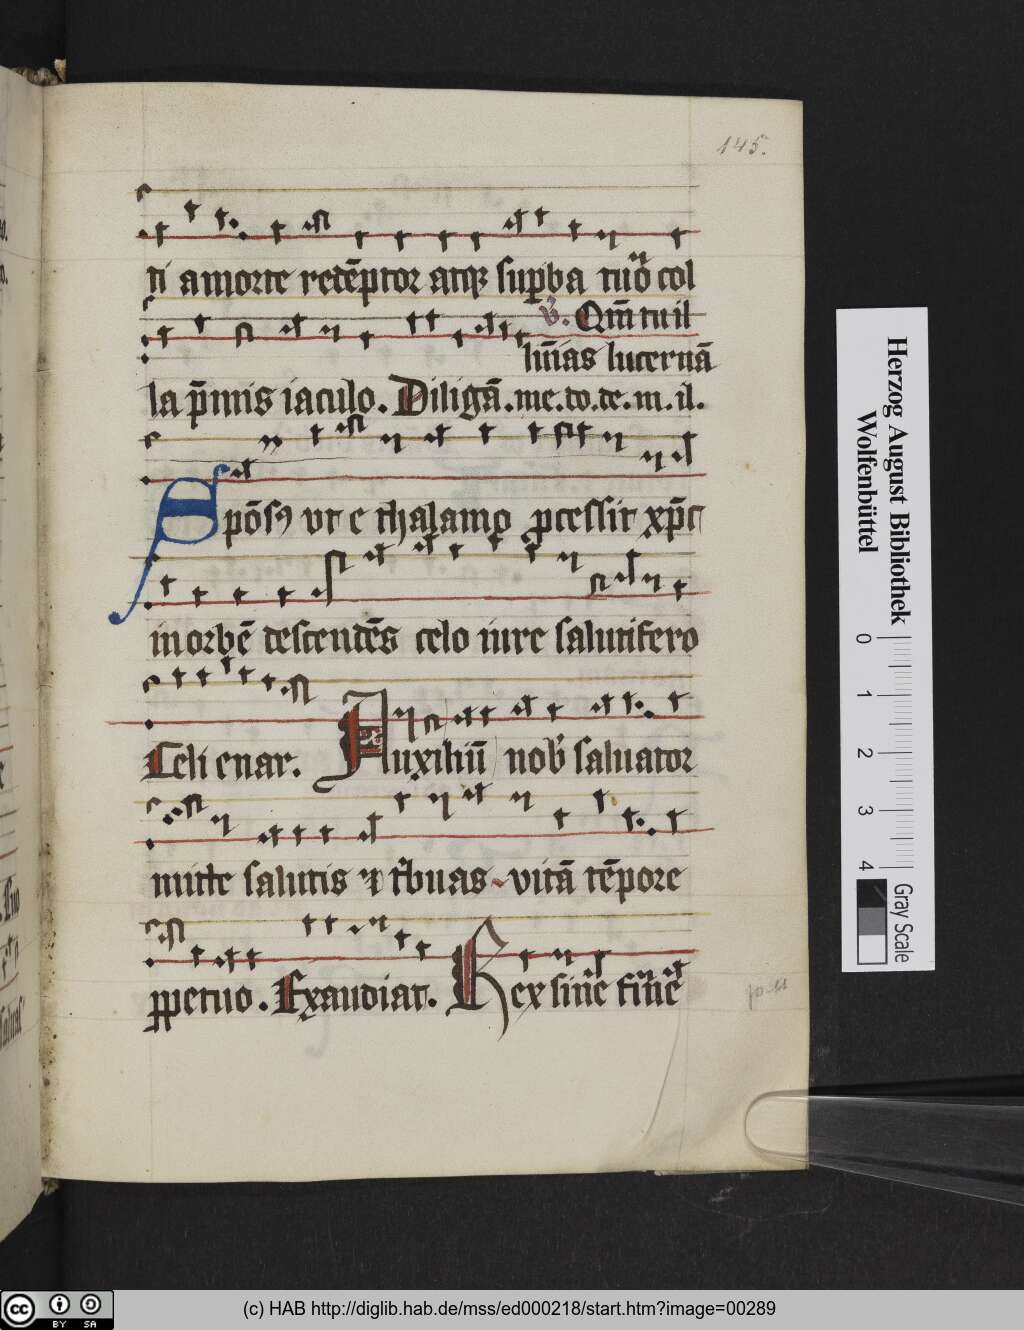 145.
di a morte redēptor atq̄ sup̄ba tuō col
℣. Qm̄ tu il
lūīas lucernā
la p̄mis iaculo. Diligā. me. do. de. m. il.
Spōs9 vt e thalamo ꝓcessit xp̄c
in orbē descendēs celo iure salutifero
Celi enar. Auxiliū nob̄ saluator
mitte salutis ⁊ t'buas vitā tēpore
ꝑpetuo. Exaudiat. Rex sine fine
Herzog August Bibliothek
Wolfenbüttel
0 1 2 3 4
Gray Scale
cc BY SA
(c) HAB http://diglib.hab.de/mss/ed000218/start.htm?image=00289